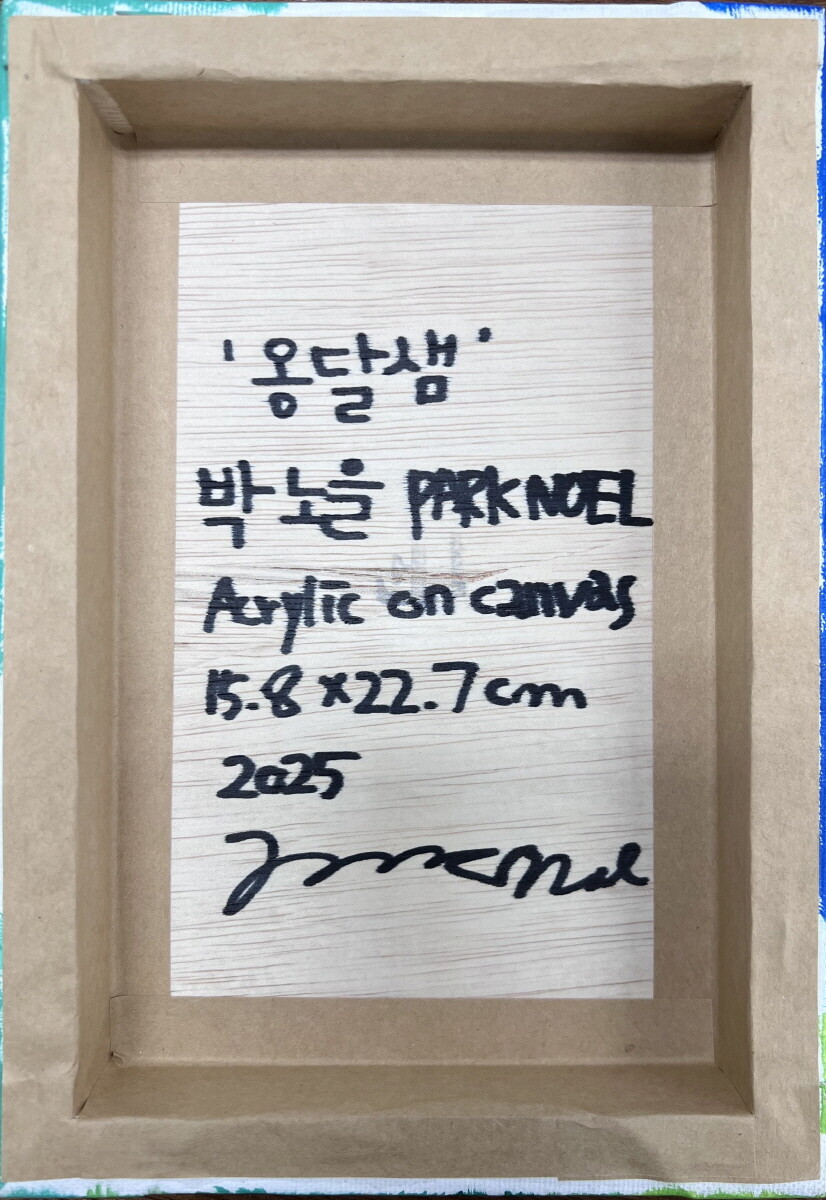 '옹달샘'
박노을 PARK NOEL
Acrylic on canvas
15.8 x 22.7 cm
2025